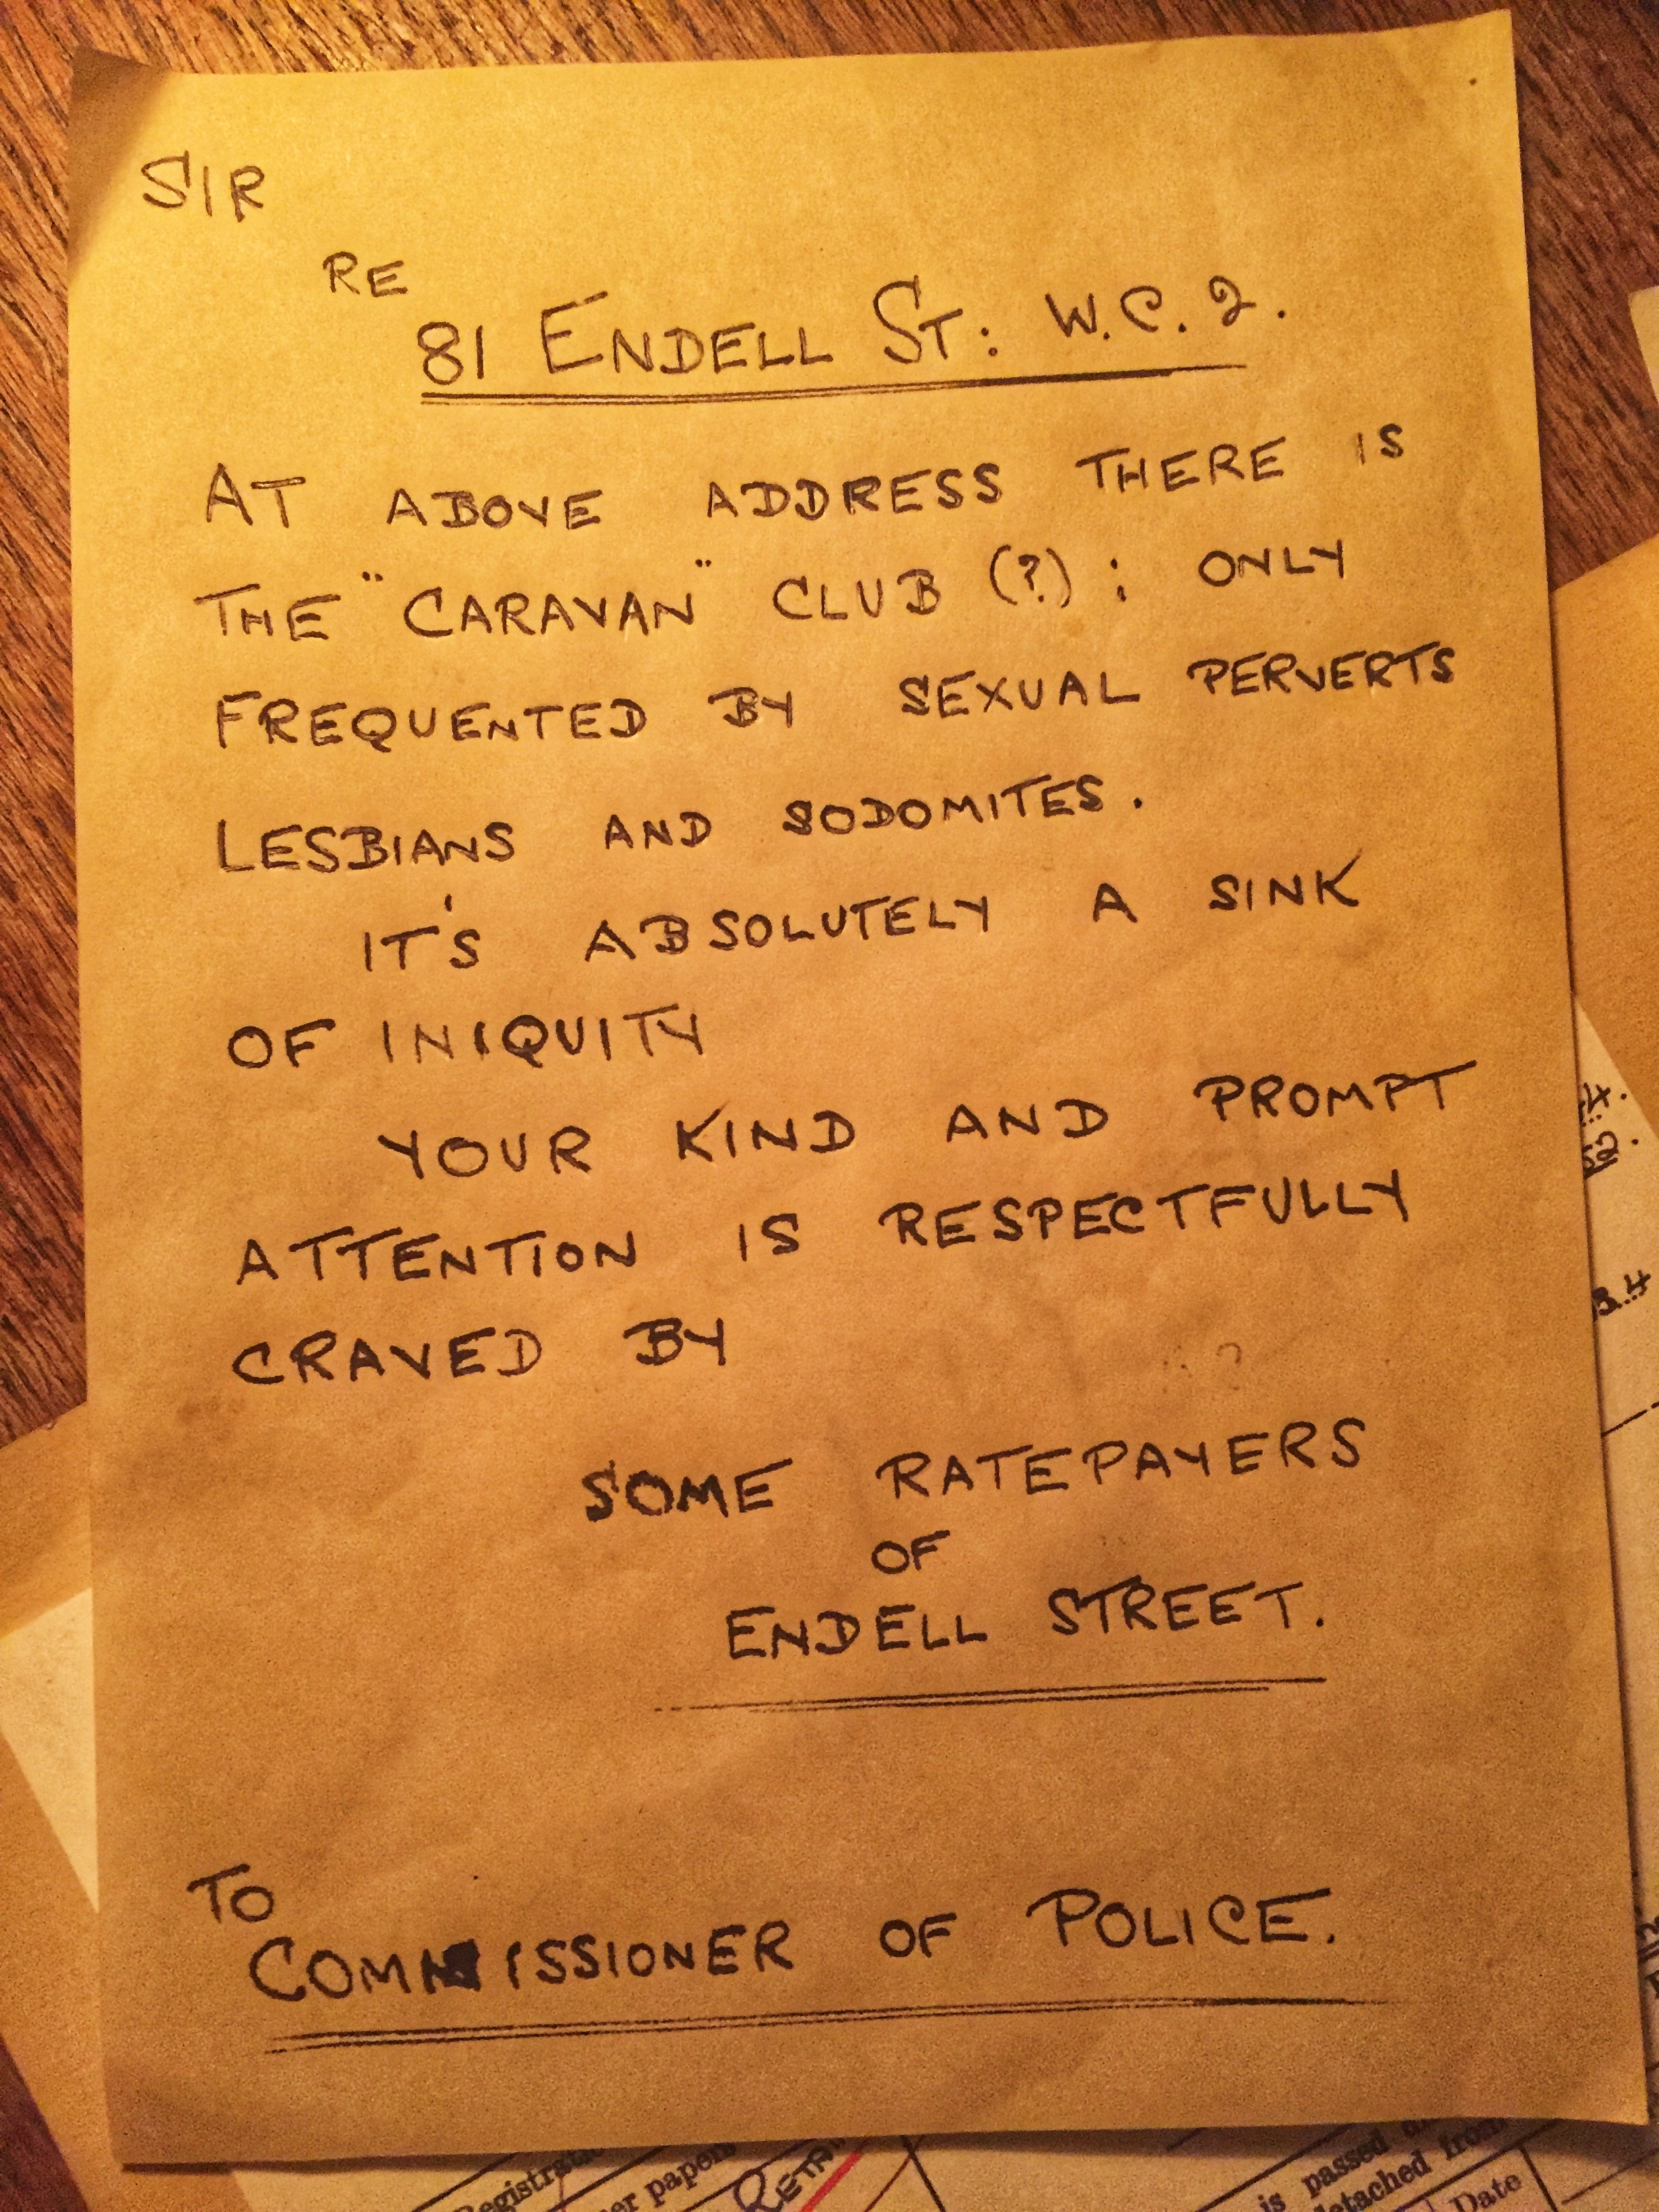 SIR
RE
81 ENDELL ST: W.C.2.
AT ABOVE ADDRESS THERE IS
THE "CARAVAN" CLUB (?): ONLY
FREQUENTED BY SEXUAL PERVERTS
LESBIANS AND SODOMITES.
IT'S ABSOLUTELY A SINK
OF INIQUITY
YOUR KIND AND PROMPT
ATTENTION IS RESPECTFULLY
CRAVED BY
SOME RATEPAYERS
OF
ENDELL STREET.
TO
COMMISSIONER OF POLICE.
is passed
detached from
Date